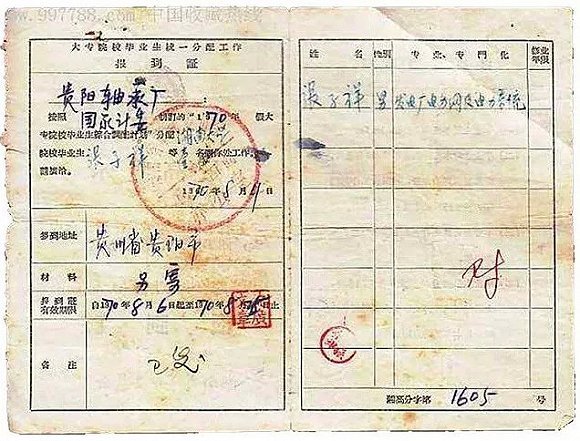 www.997788.com 中国收藏热线
大专院校毕业生统一分配工作
报到证
贵阳轴承厂
按照 国家计委 制订的“1970年 大
专院校毕业生综合调配计划”分配 湖南大学
院校毕业生 张子祥 等 壹 名到你处工作,
请接洽。
1970年8月 日
报到地址
贵州省贵阳市
材料
另寄
报到证
有效期限
自1970年8月6日起至1970年8月 日止
备注
姓名
性别
专业、专门化
修业
年限
张子祥 男 发电厂电力网及电力系统
湖高分字第 1605 号